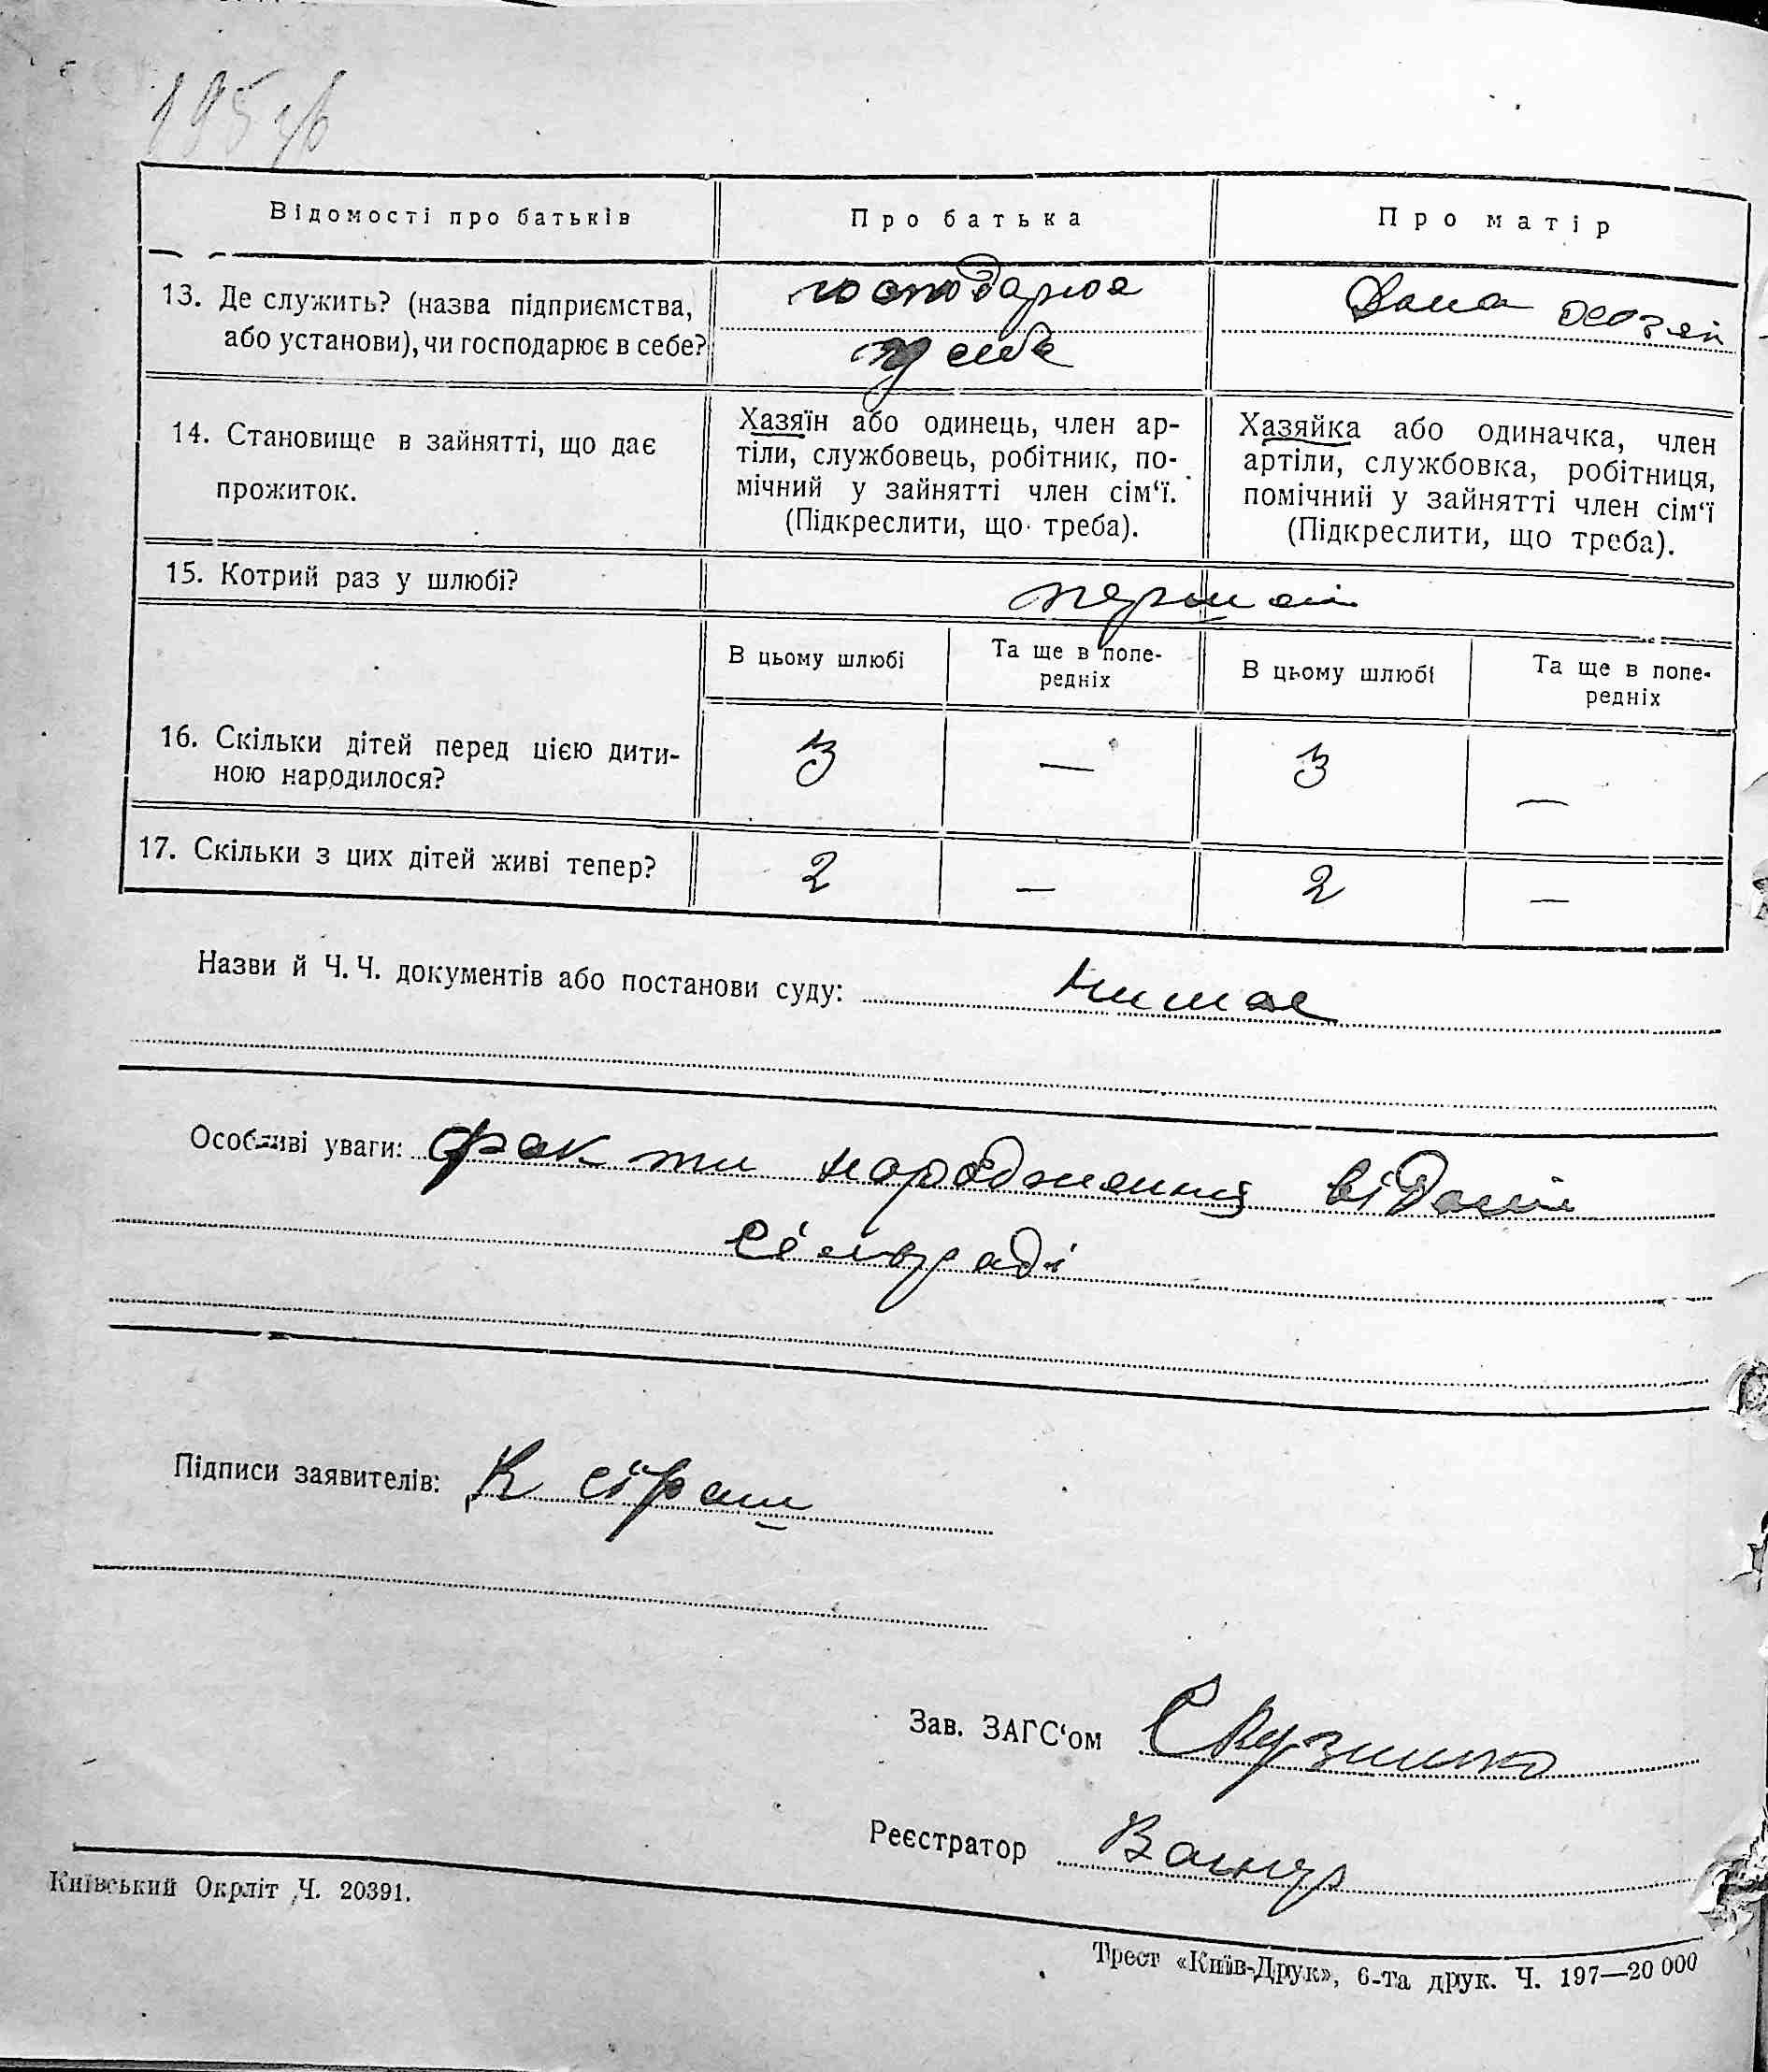 195 зв
Відомості про батьків
Про батька
Про матір
13. Де служить? (назва підприємства,
або установи), чи господарює в себе?
господарює
у себе
Дома
14. Становище в зайнятті, що дає
прожиток.
Хазяїн або одинець, член ар-
тіли, службовець, робітник, по-
мічний у зайнятті член сім‘ї.
(Підкреслити, що треба).
Хазяйка або одиначка, член
артіли, службовка, робітниця,
помічний у зайнятті член сім‘ї
(Підкреслити, що треба).
15. Котрий раз у шлюбі?
перший
В цьому шлюбі
Та ще в попе-
редніх
В цьому шлюбі
Та ще в попе-
редніх
16. Скільки дітей перед цією дити-
ною народилося?
3 — 3 —
17. Скільки з цих дітей живі тепер?
2 — 2 —
Назви й Ч. Ч. документів або постанови суду: нимае
Особливі уваги: факти народження відомі
сільраді
Підписи заявителів: К
Зав. ЗАГС‘ом
Реєстратор
Київський Окрліт Ч. 20391.
Трест «Київ-Друк», 6-та друк. Ч. 197—20 000